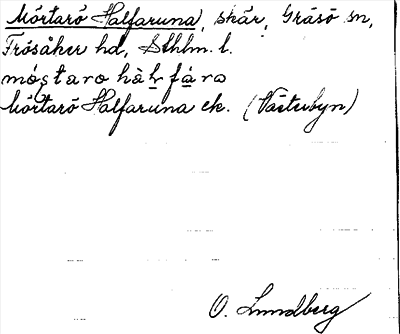 Mörtarö Halfaruna, skär, Gräsö sn,
Frösåker hd, Sthlm. l.
mǫʂtaro hàl̠fa̠ro
Mörtarö Halfaruna ek. (Västerbyn)
O. Lundberg